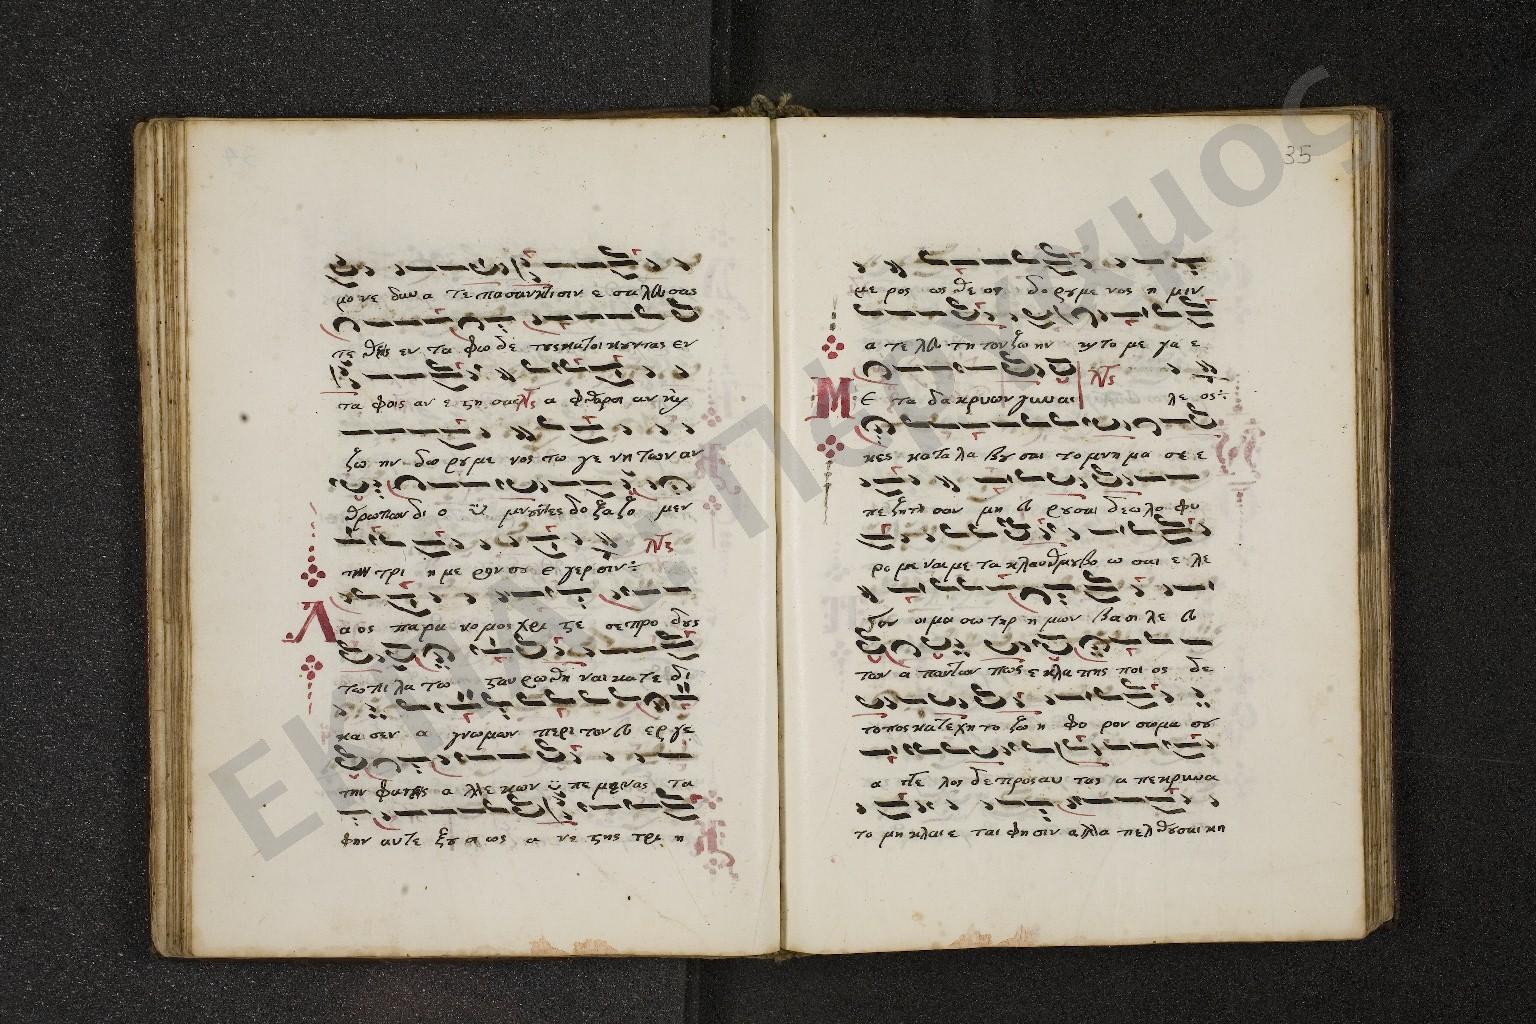 μο νε δυν α τε πα σαν κτι σιν ε σα λευ σας
τε θεις εν τα φω δε τους κατοι κουντας εν
τα φοις αν ε στη σας α φθαρσι αν και
ζω ην δω ρου με νος τω γε νη των αν
θρωπων δι ο υ μνουντες δο ξα ζο μεν
την τρι η με ρον σου ε γερ σιν
Λα ος παρα νο μος χρι στε σε προ δους
τω πι λα τω σταυ ρω θη ναι κα τε δι
κα σεν α γνωμων περι τον ευ ερ γε
την φανεις α λλε κων υ πε μεινας τα
φην αυτε ξου σι ως α νε στης τρι η
35
με ρος ως θε ος δω ρου με νος η μιν
α τε λευ τη τον ζω ην και το με γα ε
λε ος
Με τα δα κρυων γυναι
κες κατα λα βου σαι το μνη μα σε ε
πε ζητη σαν μη ευ ρουσαι δε ω λο φυ
ρο με ναι με τα κλαυθμου βο ω σαι ε λε
γον οι μοι σωτηρ η μων βασι λε ευ
των α παντων πως ε κλα πης ποι ος δε
τοπος κατεχη το ζω η φο ρον σωμα σου
α γγε λος δε προς αυ τας α πεκρινα
το μη κλαιε ται φη σιν αλλα πελ θουσαι κη
ΕΚΠΑ/Πέργαμος